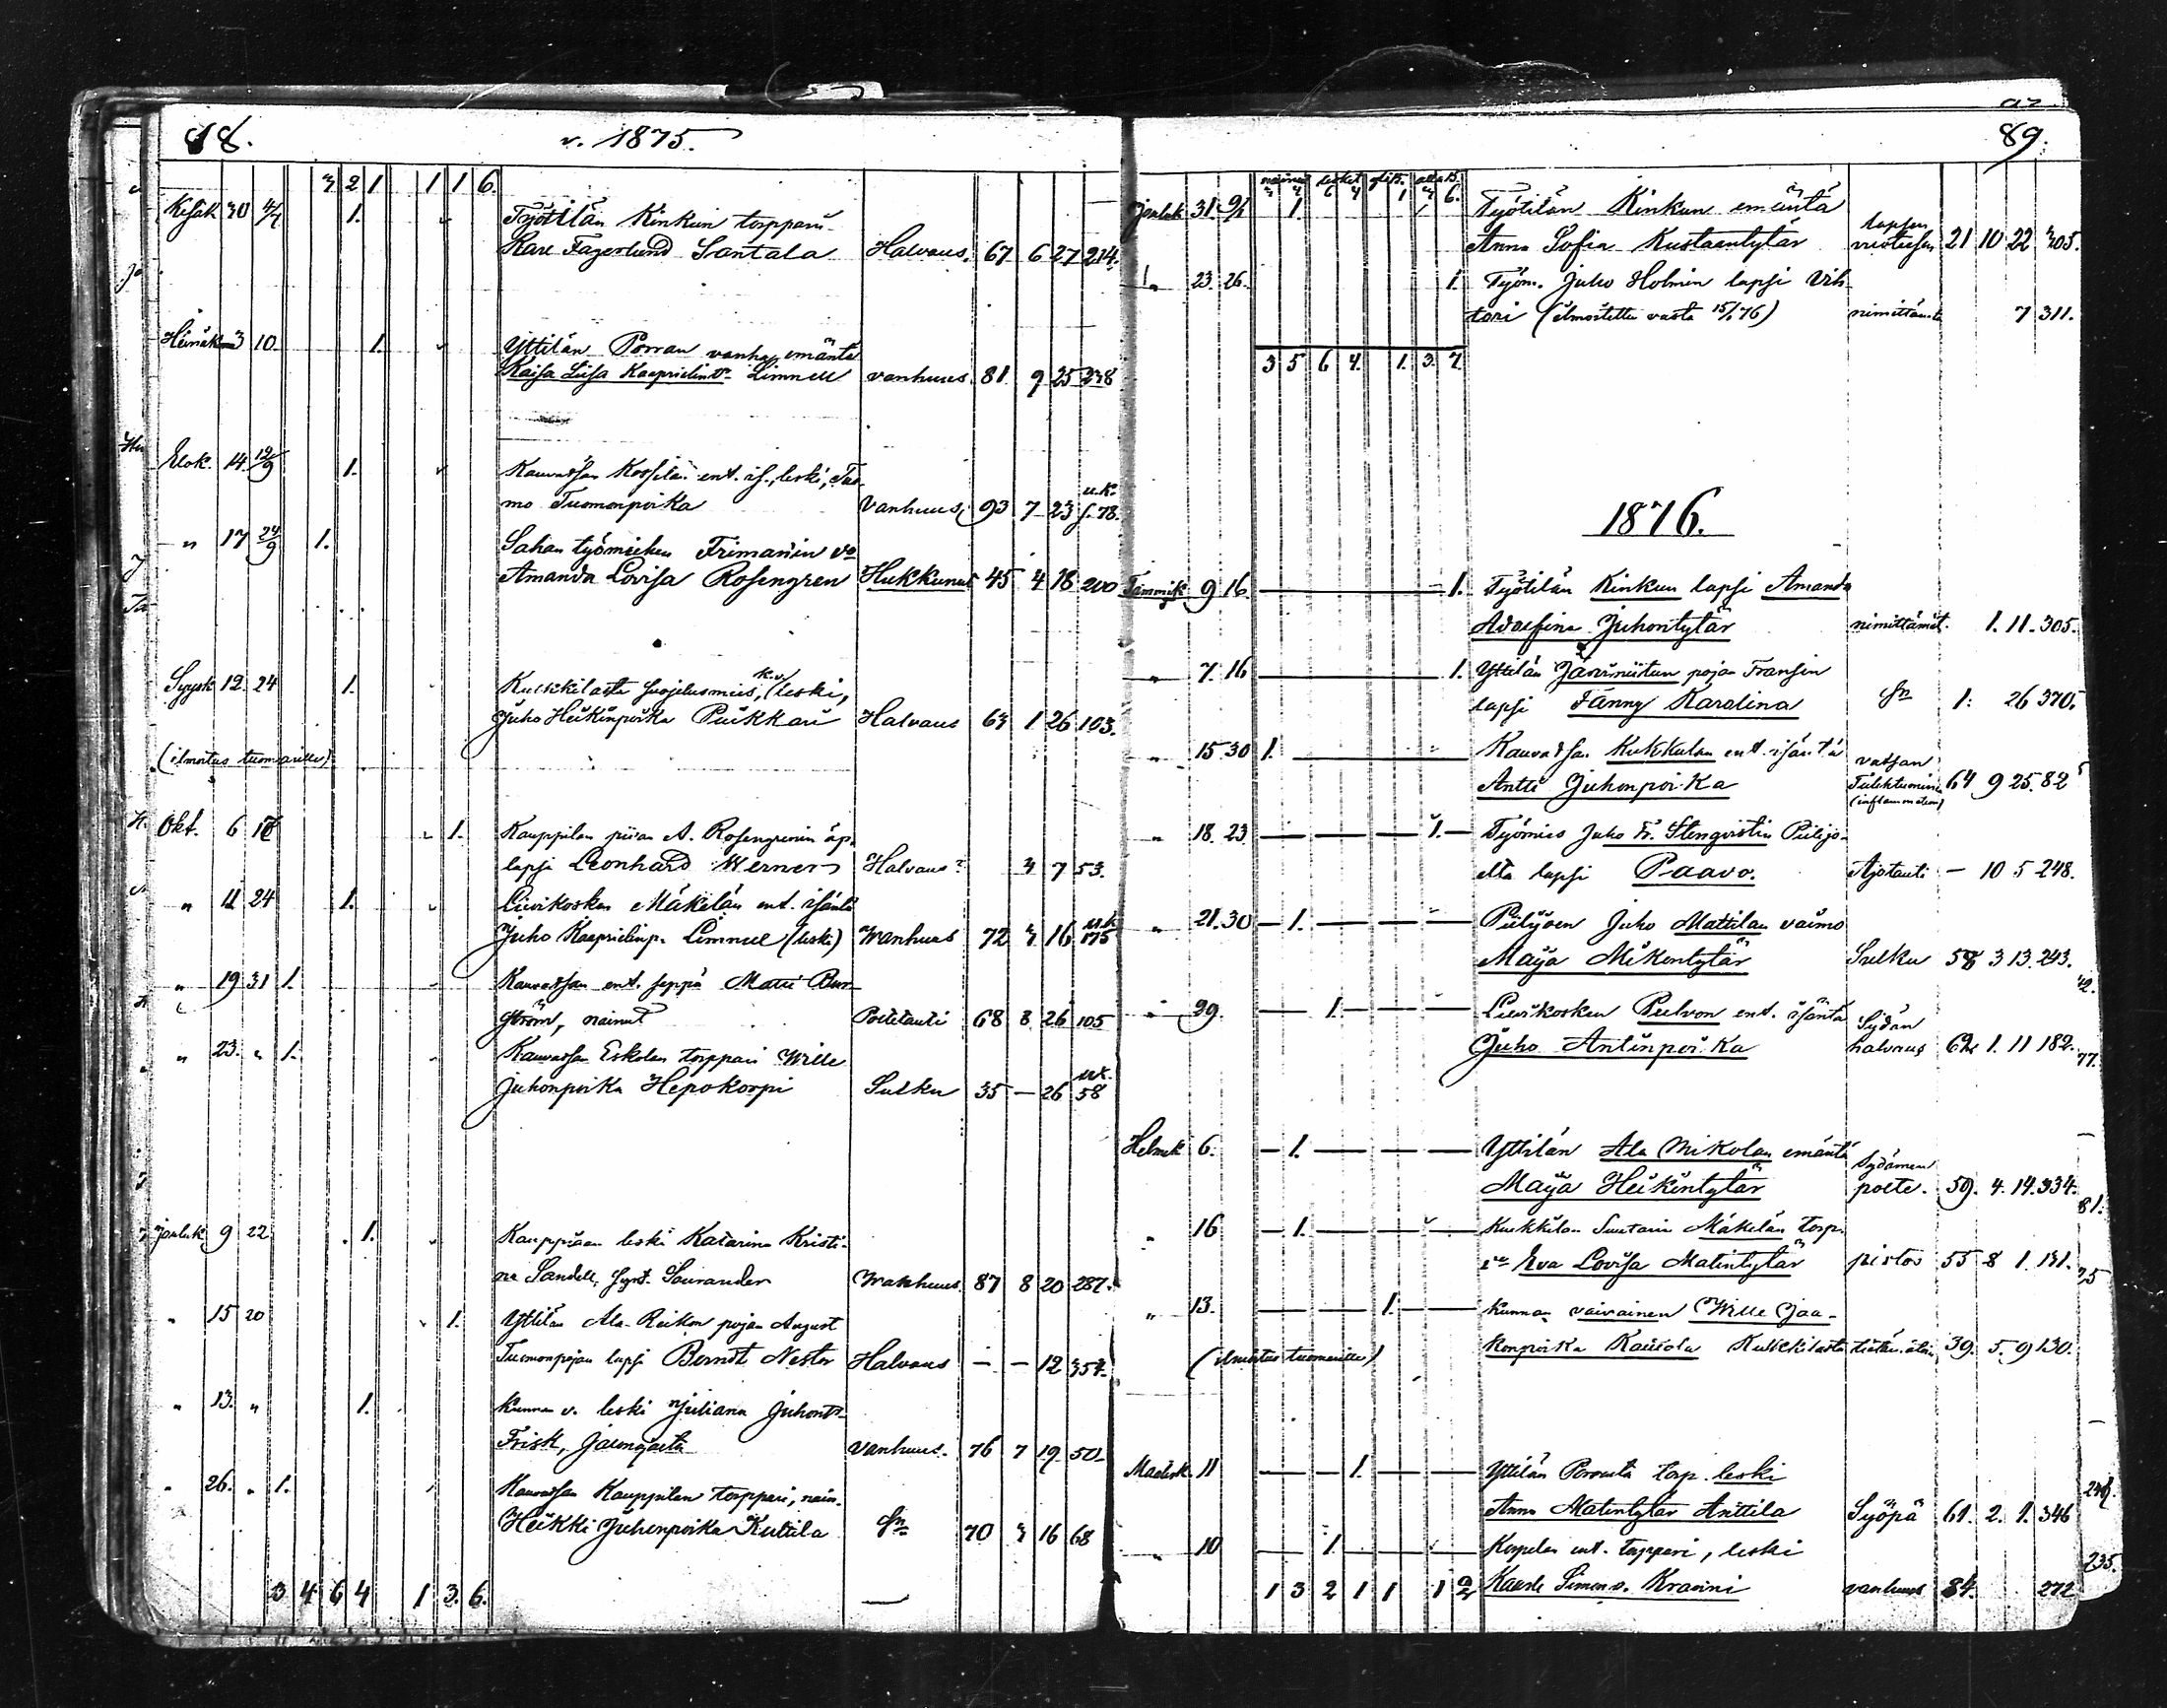 88.
v. 1875.
3 2 1 1 1 6.
Kesäk 30 4/7 1. Työtilän Kinkun torppari
Karl Fagerlund Santala Halvaus. 67 6 27 214.
Heinäk 3 10. 1. Yttilän Porran vanha emäntä
Kaisa Liisa Kaaprielint. Limnell vanhuus. 81 9 25 238
Elok. 14. 12/9 1. Kauvatsan ent. is., leski, Tuo-
mo Tuomonpoika Vanhuus, 93 7 23 s. 78.
" 17 24/9 1. Sahan työmiehen Frimanin vo
Amanda Lovisa Rosengren Hukkunut 45 4 18 200
Syysk 12. 24 1. Kuckkilasta suojelusmies, (leski,
Juho Heikinpoika Puikkari Halvaus 63 1 26 103.
(ilmoitus tuomarille)
Okt. 6 1. Kauppilan piian A. Rosengrenin äp.
lapsi Leonhard Werner Halvaus? 3 7 53.
" 11 24 1. Liivikosken Mäkelän ent. isäntä
Juho Kaaprielinp. Limnell (leski) Wanhuus 72 3 16 175
" 19 31 1. Kauvatsan ent. seppä Matti
ström, nainut Polttotauti 68 8 26 105
" 23. " 1. Kauvatsan Eskolan torppari Wille
Juhonpoika Hepokorpi Sulku 35 — 26 58
Jouluk 9 22 1. Kauppiaan leski Katarina Kristi-
na Sandell, synt. Saurander Wanhuus 87 8 20 287.
" 15 20 1. Yttilän Ala-Reikon pojan August
Tuomonpojan lapsi Berndt Nestor Halvaus — — 12 354.
" 13. " 1. Kunnan v. leski Juliana Juhont.
Frisk, Jalonojalta vanhuus. 76 7 19 50.
" 26. " 1. Kauvatsan Kauppilan torppari, nain.
Heikki Juhonpoika Kutila sn 70 3 16 68
3 4 6 4 1 3. 6.
89.
Jouluk 31. 9/1 1 Työtilän Kinkun emäntä
Anna Sofia Kustaantytär lapsen vuoteesen 21 10 22 305.
" 23. 26. 1. Työm. Juho Holmin lapsi Vih-
tori (ilmoitettu vasta 15/1 76) nimittämät. 7 311.
3 5 6 4. 1. 3. 7.
1876.
Tammik 9 16. 1. Työtilän Kinkun lapsi Amanda
Adolfina Juhontytär nimittämät. 1. 11. 305.
" 7. 16 1. Yttilän Järviniitun pojan Fransin
lapsi Fanny Karolina sn 1. 26 370.
" 15 30 1. Kauvatsan Kukkulan ent. isäntä
Antti Juhonpoika vatsan Tulehtuminen (inflammation) 64 9 25. 82
" 18. 23 1. Työmies Juho Fr. Stenqvistin Piilijo-
elta lapsi Paavo. Ajotauti — 10 5 248.
" 21. 30 1. Piilijoen Juho Mattilan vaimo
Maija Mikontytär Sulku 58 3 13. 243.
" 29. 1. Liivikosken Pelvon ent. isäntä
Juho Antinpoika Sydän halvaus 62 1. 11 182.
Helmik 6. 1. Yttilän Ala Mikolan emäntä
Maija Heikintytär Sydämen polte. 59. 4. 14. 334.
" 16 1. Kuckkilan Mäkelän torp.
vo Eva Lovisa Matintytär pistos 55 8 1. 131.
" 13. 1. Kunnan vaivainen Wille Jaa-
(ilmoitus tuomarille) konpoika Kaisola Kuckkilasta 39. 5. 9 130.
Maalisk. 11 1. Yttilän Porrasta torp. leski
Anna Matintytär Anttila Syöpä 61. 2. 1. 346
" 10 1. Korpelan ent. torppari, leski
Kaarle Simonp. Krasini vanhuus 84. 272
1 3 2 1 1 1 2